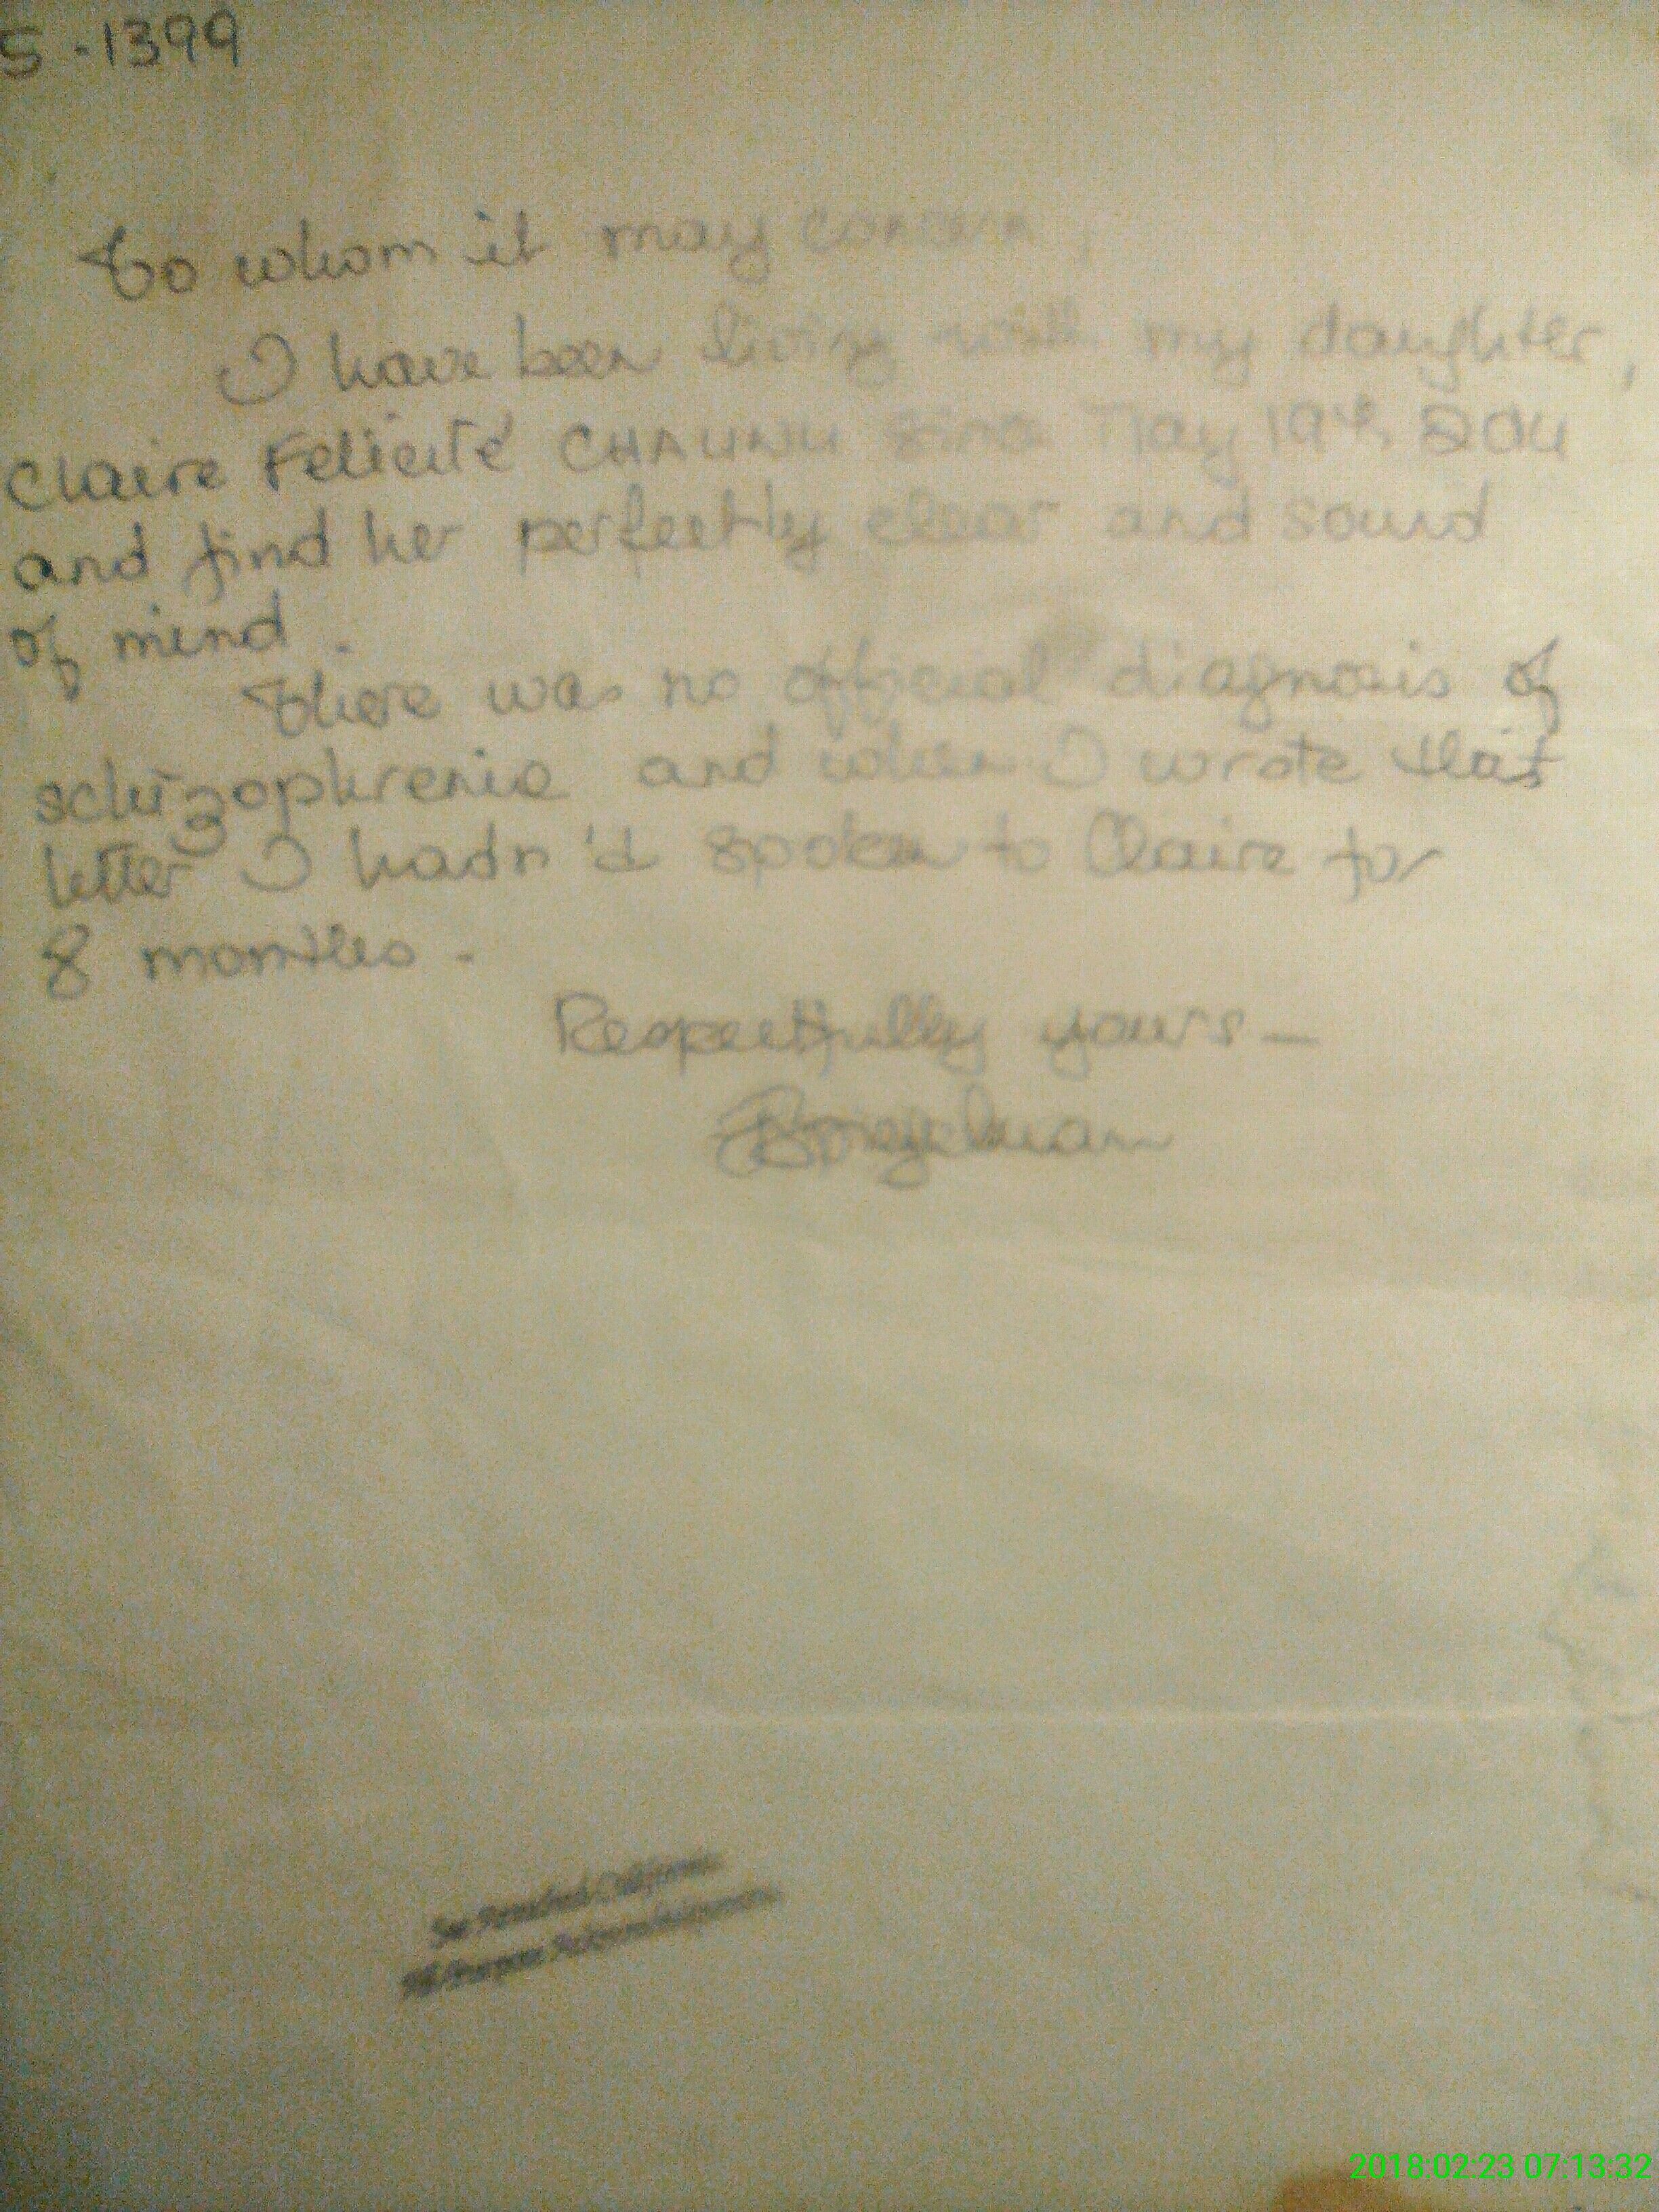 5-1399
To whom it may concern,
I have been living with my daughter,
Claire Felicité CHAUNU since May 19th
and find her perfectly clear and sound
of mind.
There was no official diagnosis of
schizophrenia and when I wrote that
letter I hadn'd spoken to Claire for
8 months.
Respectfully yours—
See Attached California
All Purpose Acknowledgment
2018:02:23 07:13:32